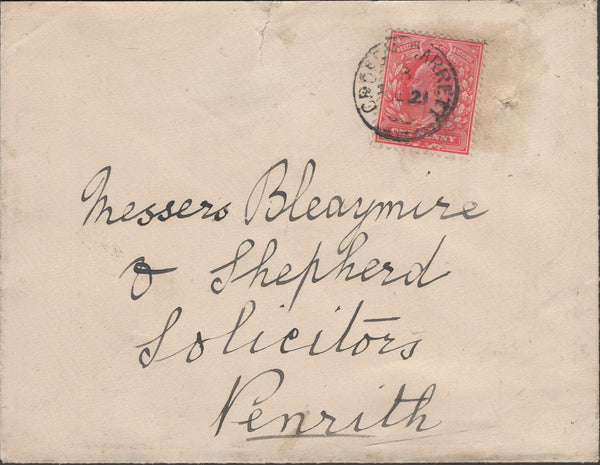 CROSBY GARRETT
21
ONE PENNY
Messers Bleaymire
& Shepherd
Solicitors
Penrith